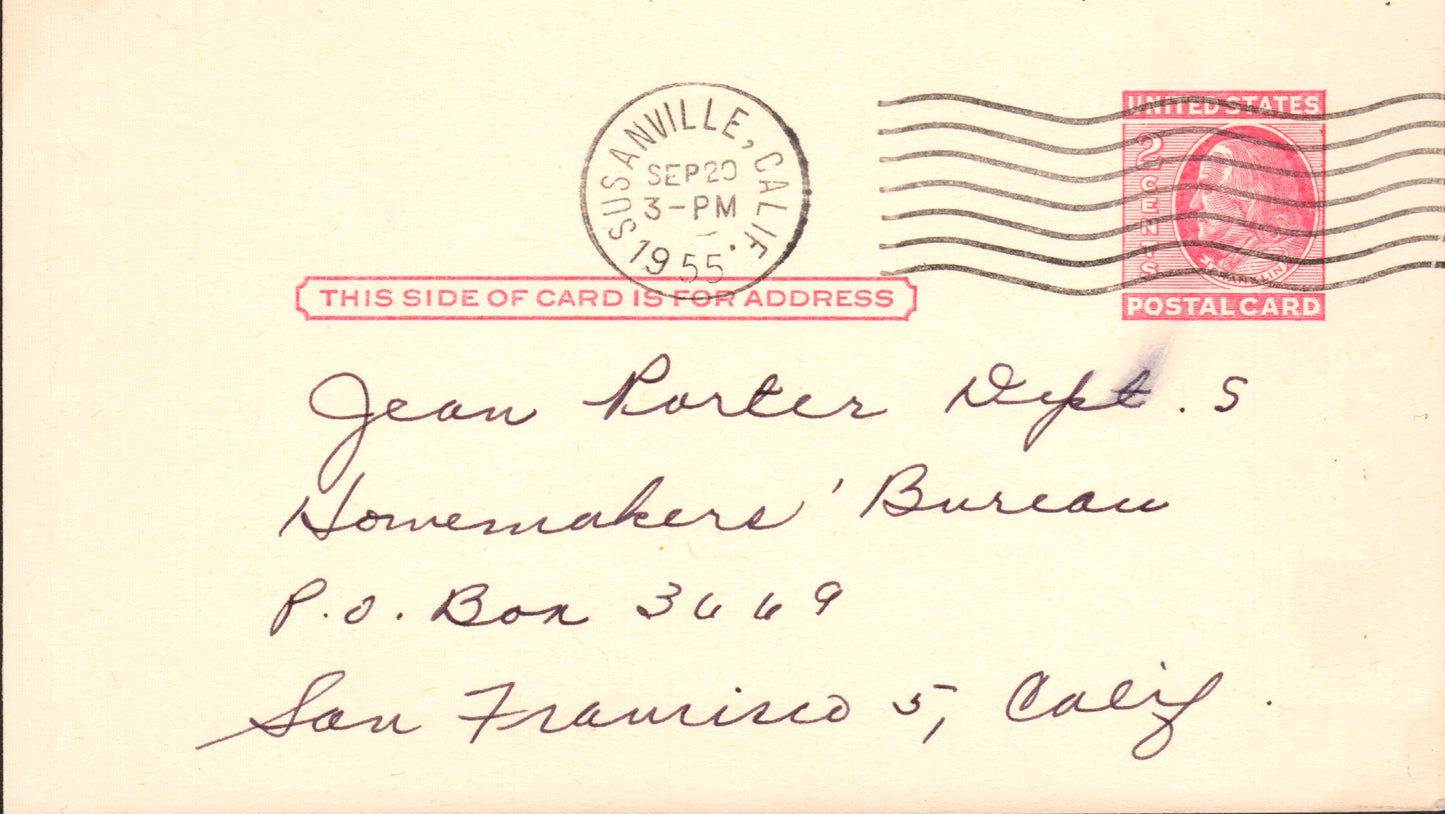 SUSANVILLE, CALIF.
SEP 20
3-PM
1955
UNITED STATES
2 CENTS
FRANKLIN
POSTAL CARD
THIS SIDE OF CARD IS FOR ADDRESS
Jean Porter Dept. S
Homemakers' Bureau
P.O. Box 3669
San Francisco 5, Calif.